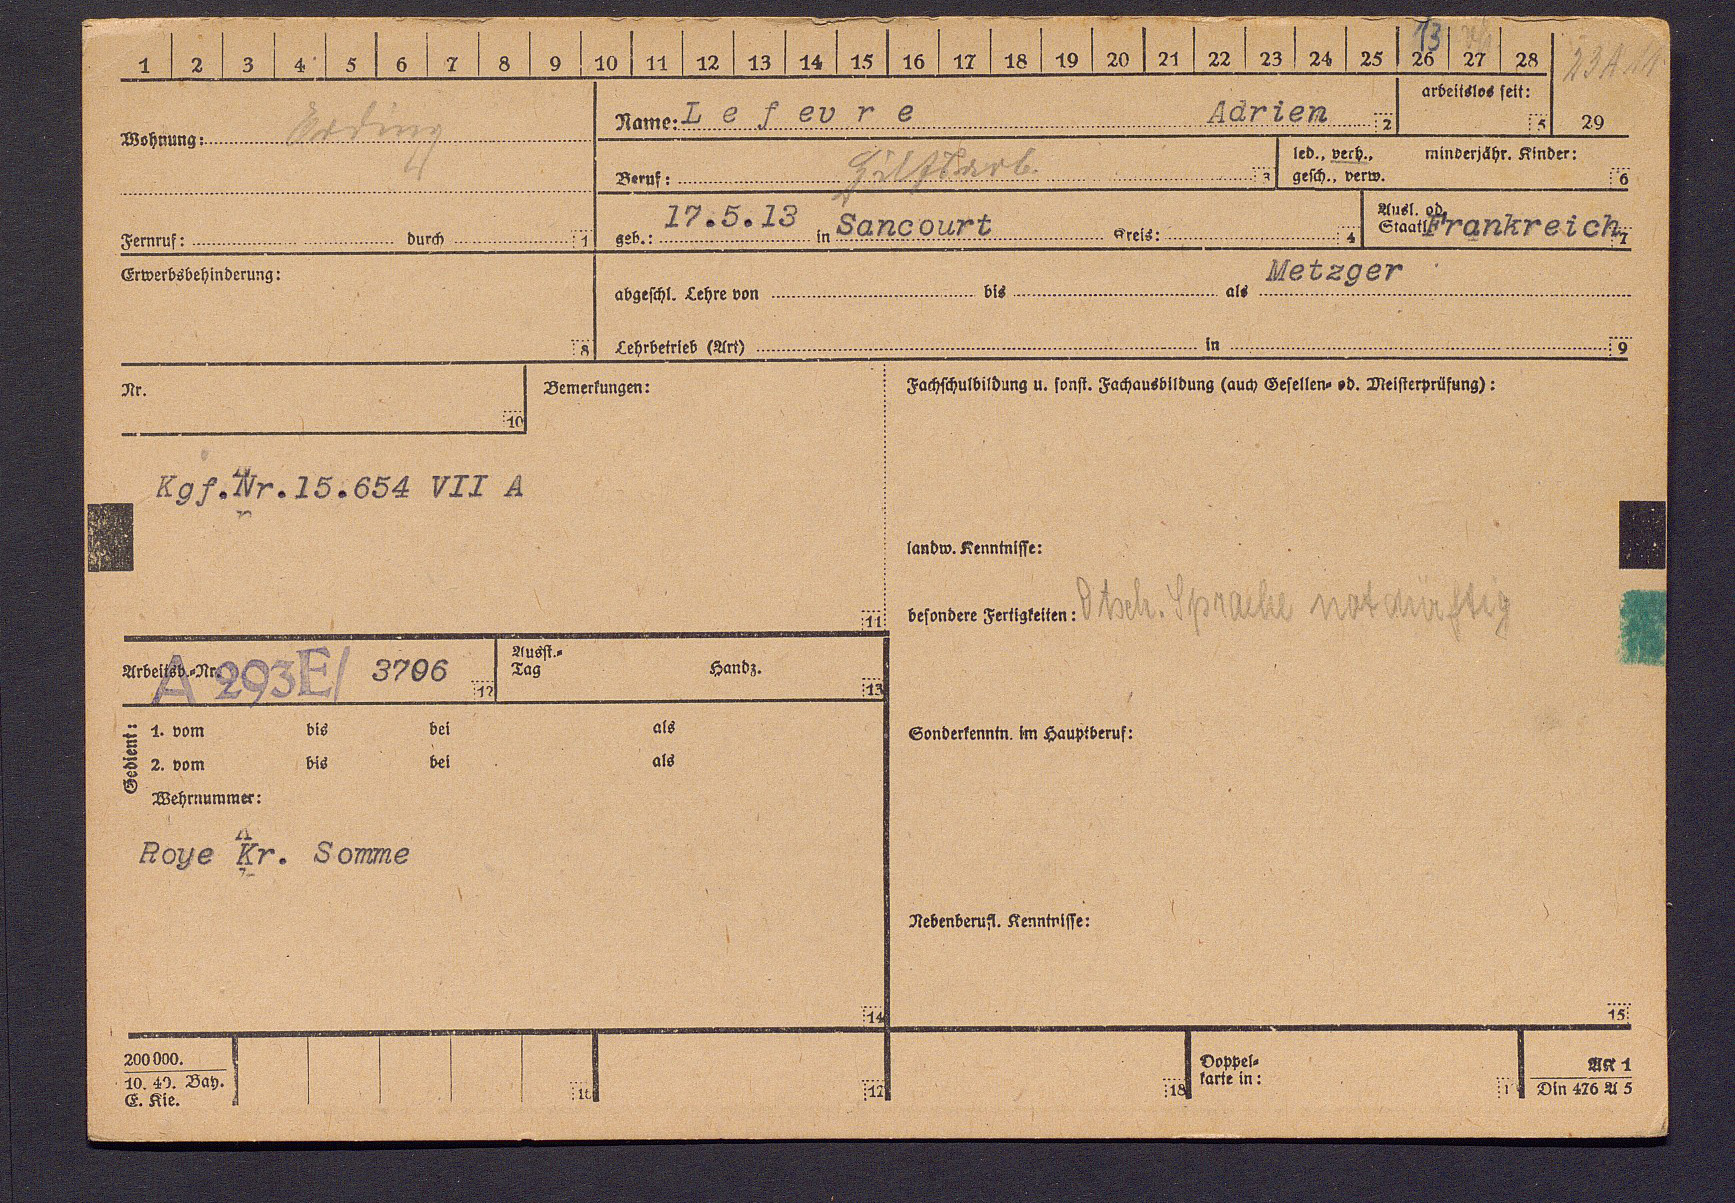 1 2 3 4 5 6 7 8 9 10 11 12 13 14 15 16 17 18 19 20 21 22 23 24 25 26 27 28
13
23A
Wohnung: Erding
Fernruf: durch 1
Name: Lefevre Adrien 2
arbeitslos seit: 5
29
Beruf: Hilfsarb. 3
led., verh., minderjähr. Kinder:
gesch., verw. 6
geb.: 17.5.13 in Sancourt Kreis: 4
Ausl. od.
Staatl. Frankreich 7
Erwerbsbehinderung:
8
abgeschl. Lehre von bis als Metzger
Lehrbetrieb (Art) in 9
Nr.
10
Bemerkungen:
Kgf.Nr.15.654 VII A
11
Fachschulbildung u. sonst. Fachausbildung (auch Gesellen- od. Meisterprüfung):
landw. Kenntnisse:
besondere Fertigkeiten: Dtsch. Sprache notdürftig
Arbeitsb.-Nr. A 293E/ 3706 12
Ausst.-
Tag Handz. 13
Gedient:
1. vom bis bei als
2. vom bis bei als
Wehrnummer:
Roye Kr. Somme
14
Sonderkenntn. im Hauptberuf:
Nebenberufl. Kenntnisse:
15
200000.
10. 40. Bay.
E. Kie.
16
17
18
Doppel-
karte in:
AK 1
Din 476 A 5